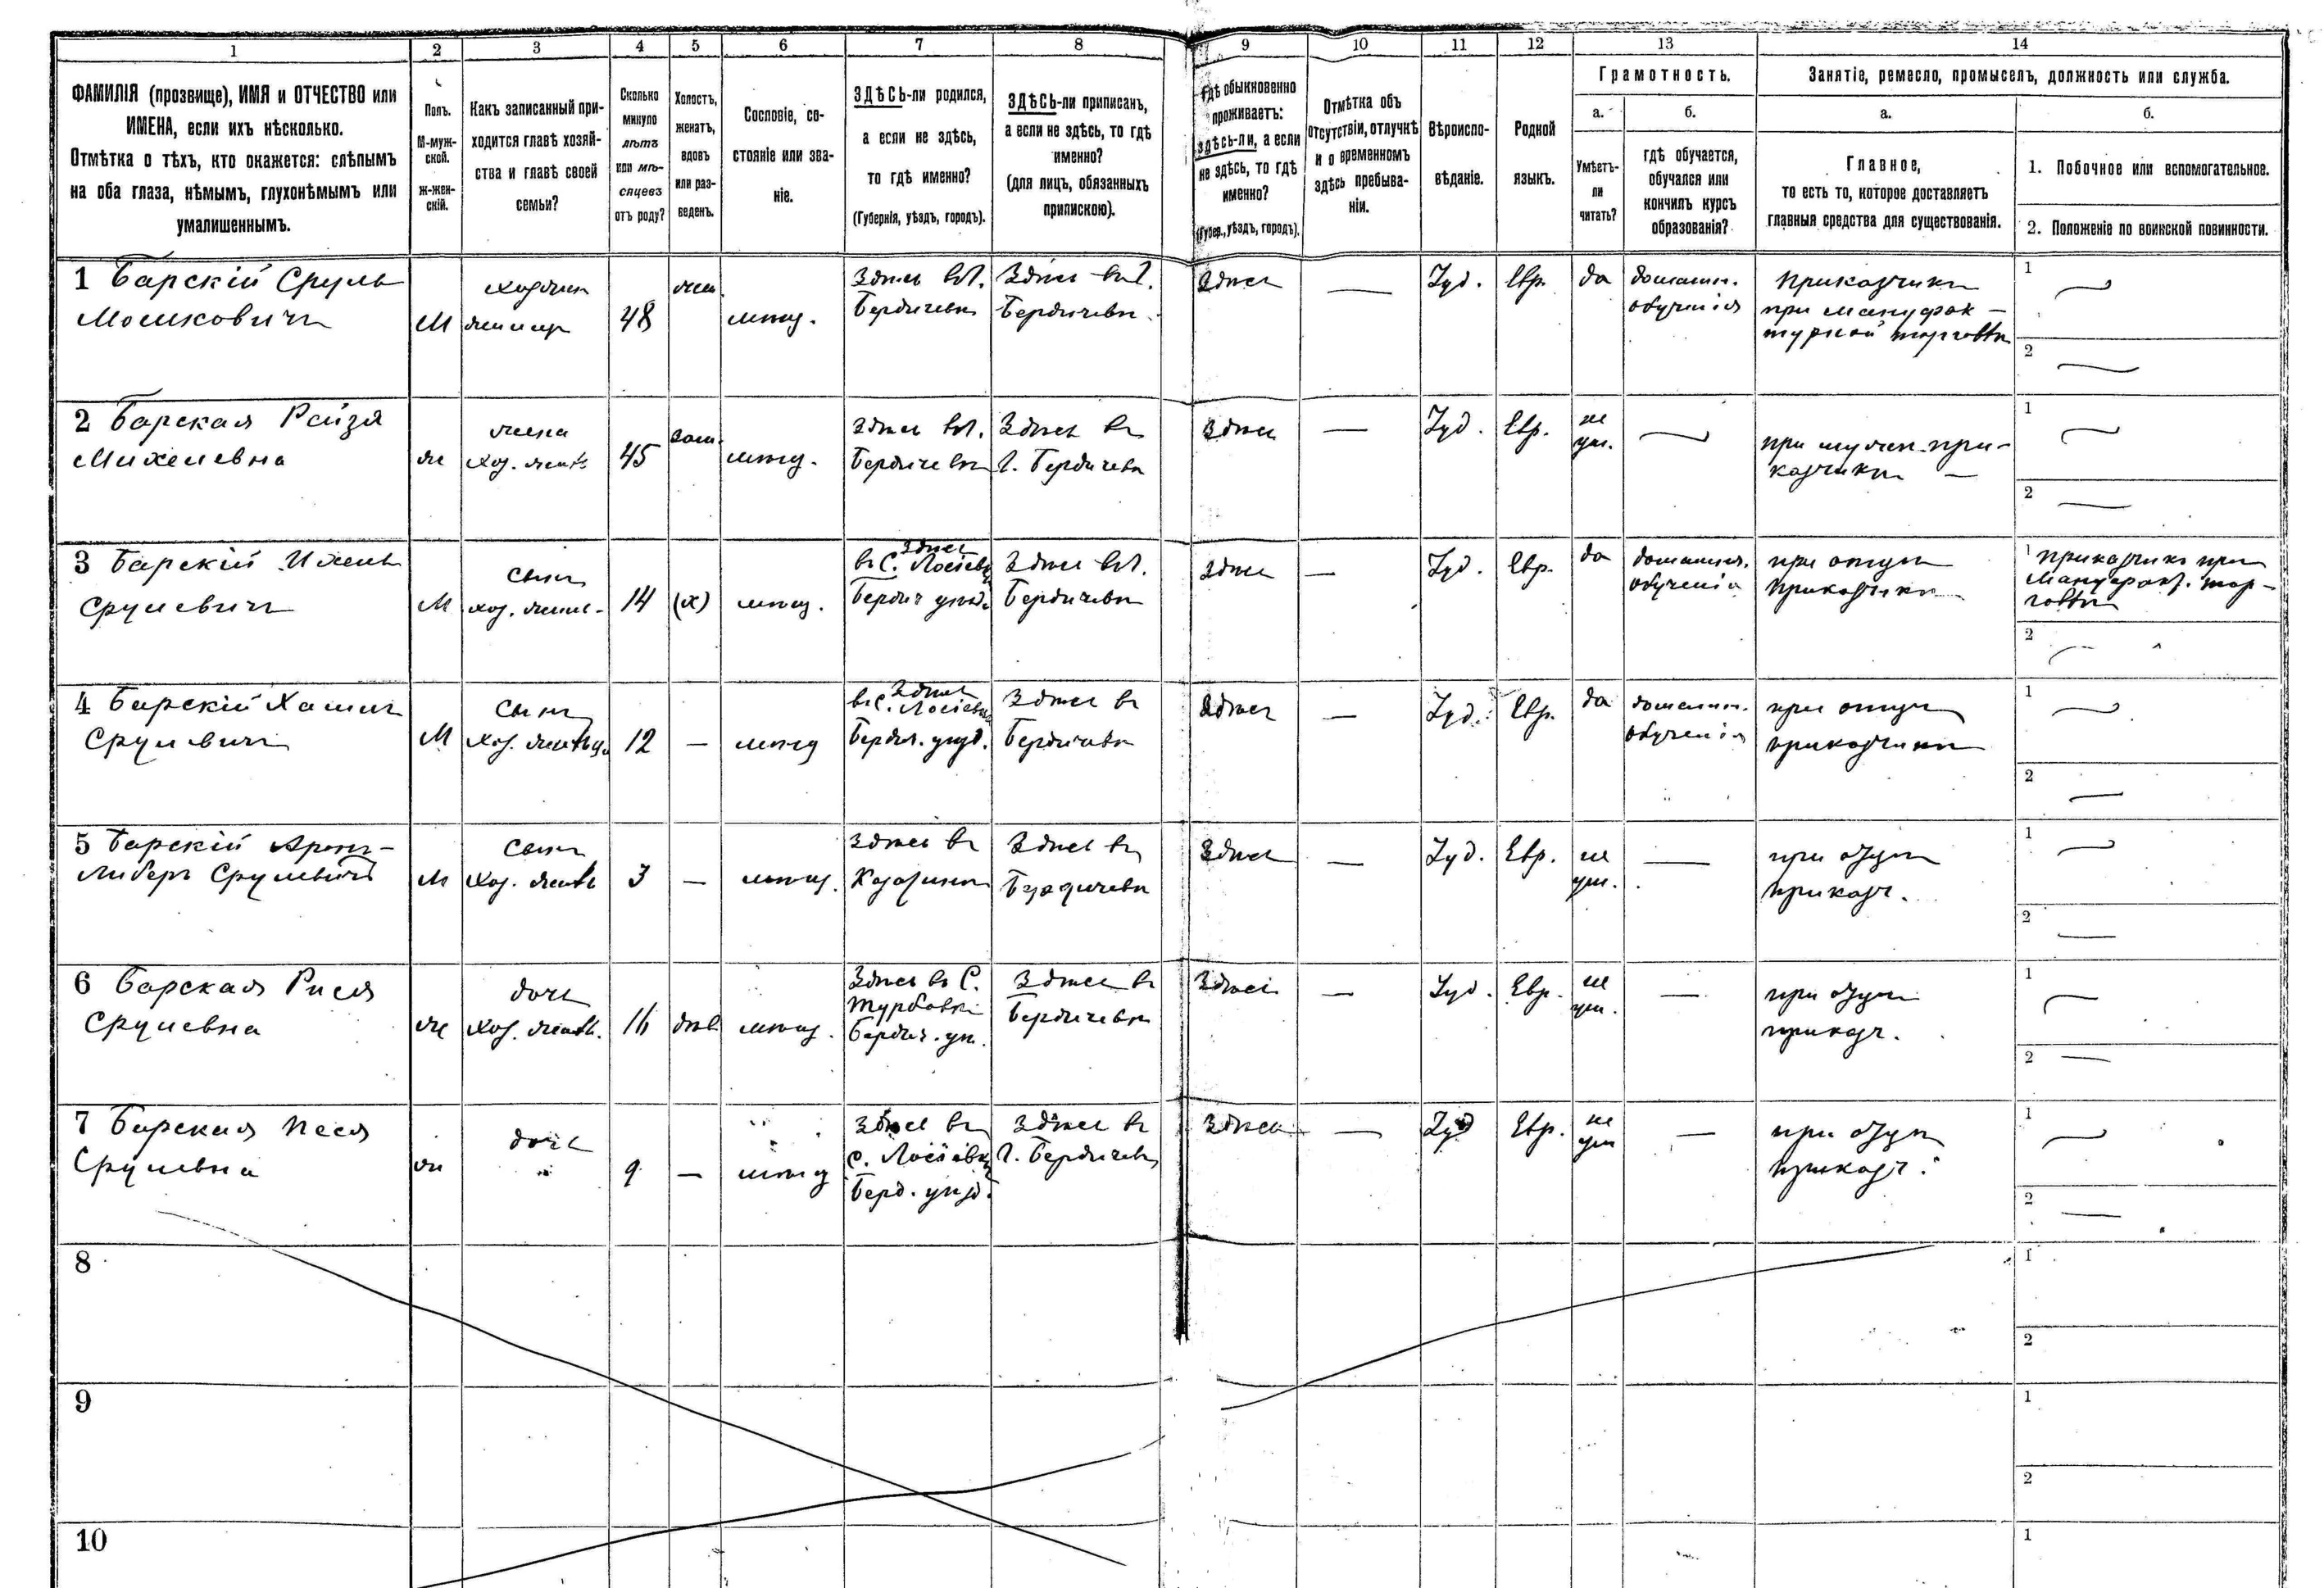 1 2 3 4 5 6 7 8 9 10 11 12 13 14
ФАМИЛІЯ (прозвище), ИМЯ и ОТЧЕСТВО или
ИМЕНА, если ихъ нѣсколько.
Отмѣтка о тѣхъ, кто окажется: слѣпымъ
на оба глаза, нѣмымъ, глухонѣмымъ или
умалишеннымъ.
Полъ.
М-муж-
ской.
ж-жен-
скій.
Какъ записанный при-
ходится главѣ хозяй-
ства и главѣ своей
семьи?
Сколько
минуло
лѣтъ
или мѣ-
сяцевъ
отъ роду?
Холостъ,
женатъ,
вдовъ
или раз-
веденъ.
Сословіе, со-
стояніе или зва-
ніе.
ЗДѢСЬ-ли родился,
а если не здѣсь,
то гдѣ именно?
(Губернія, уѣздъ, городъ).
ЗДѢСЬ-ли приписанъ,
а если не здѣсь, то гдѣ
именно?
(для лицъ, обязанныхъ
припискою).
Гдѣ обыкновенно
проживаетъ:
здѣсь-ли, а если
не здѣсь, то гдѣ
именно?
(Губер., уѣздъ, городъ).
Отмѣтка объ
отсутствіи, отлучкѣ
и о временномъ
здѣсь пребыва-
ніи.
Вѣроиспо-
вѣданіе.
Родной
языкъ.
Грамотность.
а.
Умѣетъ-
ли
читать?
б.
гдѣ обучается,
обучался или
кончилъ курсъ
образованія?
Занятіе, ремесло, промыселъ, должность или служба.
а.
Главное,
то есть то, которое доставляетъ
главныя средства для существованія.
б.
1. Побочное или вспомогательное.
2. Положеніе по воинской повинности.
1 Барскій Сруль
Мошковичъ
М
48
Здѣсь въ г.
Бердичевѣ
Здѣсь въ г.
Бердичевѣ
Здѣсь
—
Іуд.
Евр.
да
домашн.
обученія
Приказчикъ
при мануфак-
турной торговлѣ
1
2
2 Барская Рейзя
Михелевна
ж
жена
45
зам.
Здѣсь въ г.
Бердичевѣ
Здѣсь въ
г. Бердичевѣ
Здѣсь
—
Іуд.
Евр.
не
ум.
—
при мужѣ при-
казчикѣ —
1
2
3 Барскій Ихель
Срулевичъ
М
сынъ
14
(х)
Здѣсь
въ С. Лосіевкѣ
Бердич уѣзд.
Здѣсь въ г.
Бердичевѣ
Здѣсь
—
Іуд.
Евр.
да
домашн.
обученія
при отцѣ
приказчикѣ
1 приказчикъ при
мануфакт. тор-
говлѣ
2
4 Барскій Хаимъ
Срулевичъ
М
сынъ
12
—
Здѣсь
въ С. Лосіевкѣ
Бердич. уѣзд.
Здѣсь въ
Бердичевѣ
Здѣсь
—
Іуд.
Евр.
да
домашн.
обученія
при отцѣ
приказчикѣ
1
2
5 Барскій Аронъ-
Либеръ Срулевичъ
М
сынъ
3
—
Здѣсь въ
Казатинѣ
Здѣсь въ
Бердичевѣ
Здѣсь
—
Іуд.
Евр.
не
ум.
—
при отцѣ
приказч.
1
2
6 Барская Рися
Срулевна
ж
дочь
16
дѣв
Здѣсь въ С.
Турбовкѣ
Бердич. уѣ.
Здѣсь въ
Бердичевѣ
Здѣсь
—
Іуд.
Евр.
не
ум.
—
при отцѣ
приказч.
1
2
7 Барская Песя
Срулевна
ж
дочь
"
9
—
Здѣсь въ
с. Лосіевкѣ
Берд. уѣзд.
Здѣсь въ
г. Бердичевѣ
Здѣсь
—
Іуд
Евр.
не
ум
—
при отцѣ
приказч.
1
2
8
1
2
9
1
2
10
1